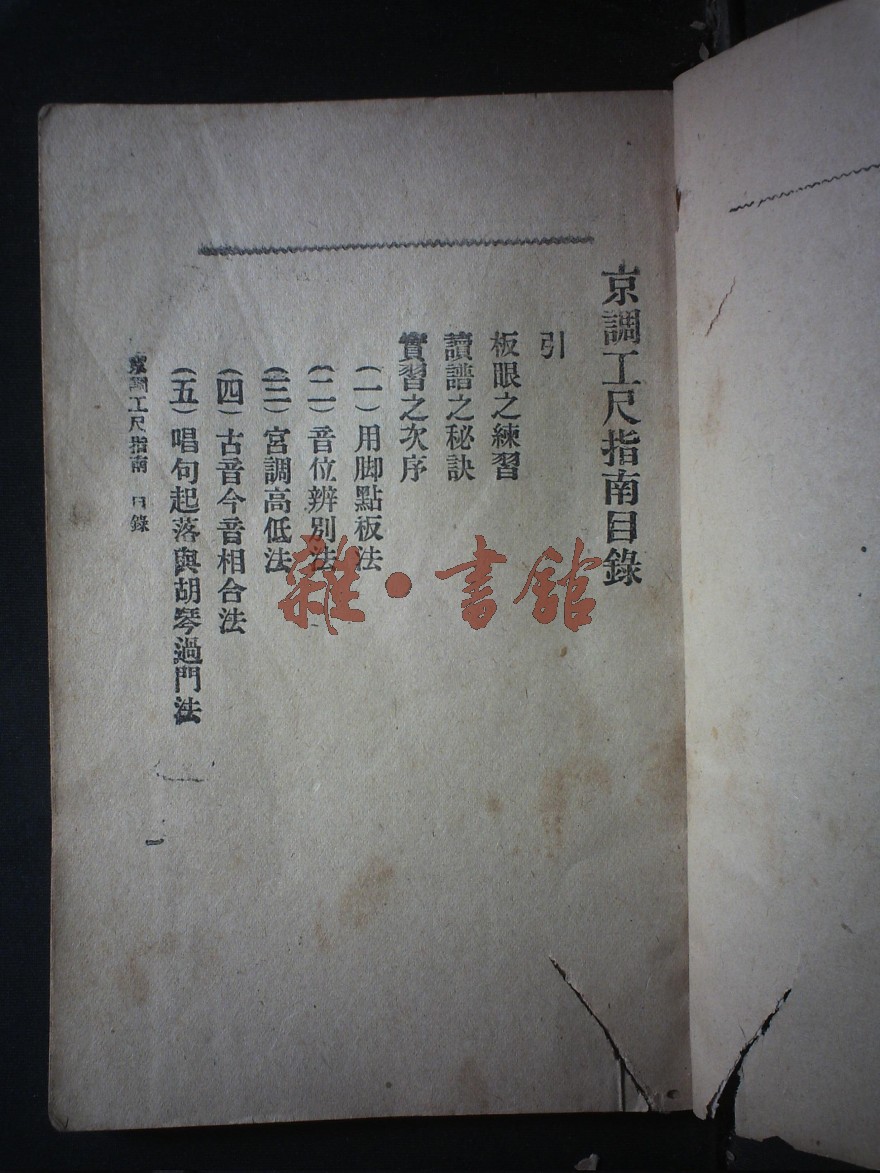 京調工尺指南目錄
引
板眼之練習
讀譜之秘訣
實習之次序
(一)用脚點板法
(二)音位辨別法
(三)宮調高低法
(四)古音今音相合法
(五)唱句起落與胡琴過門法
京調工尺指南 目錄
一
雜·書館